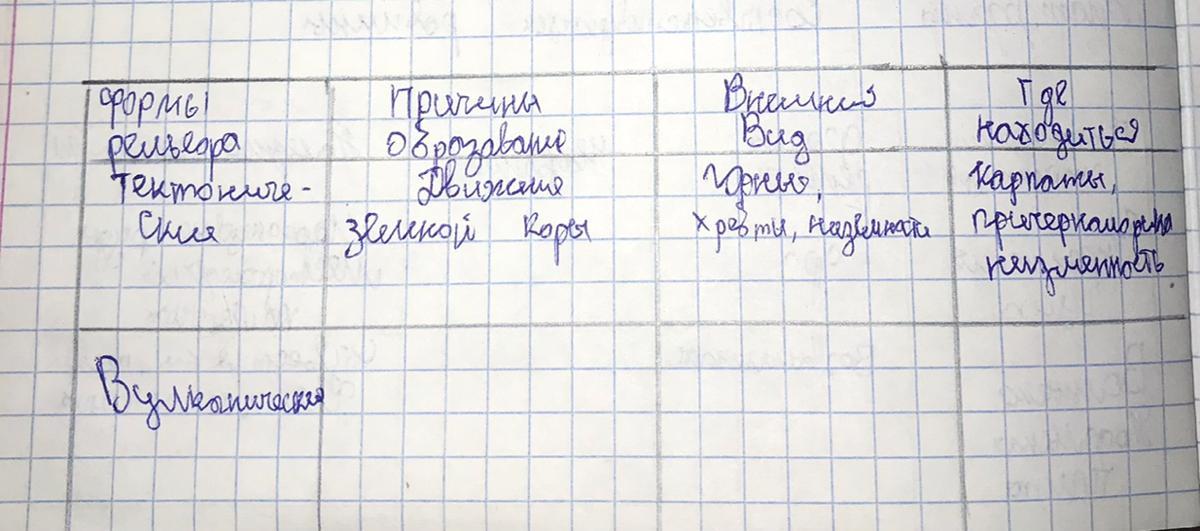 Формы Причины Внешний Где
рельефа образование Вид находиться
Тектониче- Движение горные, Карпаты,
ские земной коры хребты, низменности причерноморска
низменность
Вулканические